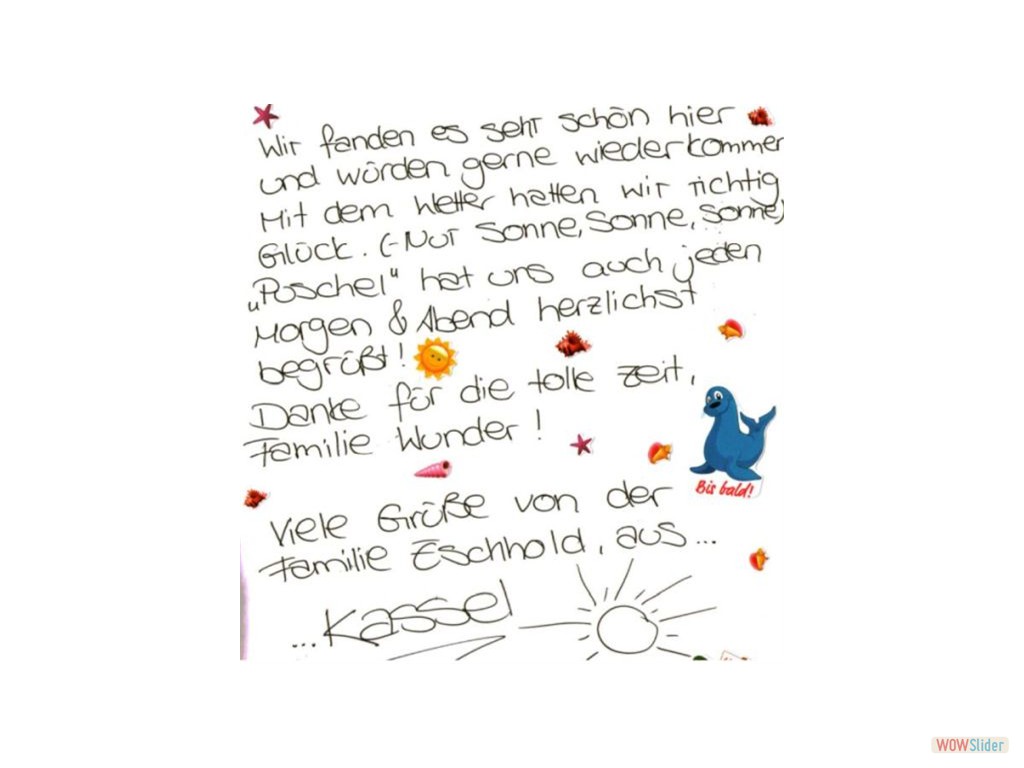 Wir fanden es sehr schön hier
und würden gerne wiederkommen
Mit dem Wetter hatten wir richtig
Glück. (-Nur Sonne, Sonne, Sonne)
„Puschel“ hat uns auch jeden
Morgen & Abend herzlichst
begrüßt!
Danke für die tolle Zeit,
Familie Wunder!
Bis bald!
Viele Grüße von der
Familie Eschhold, aus...
...Kassel
WOWSlider